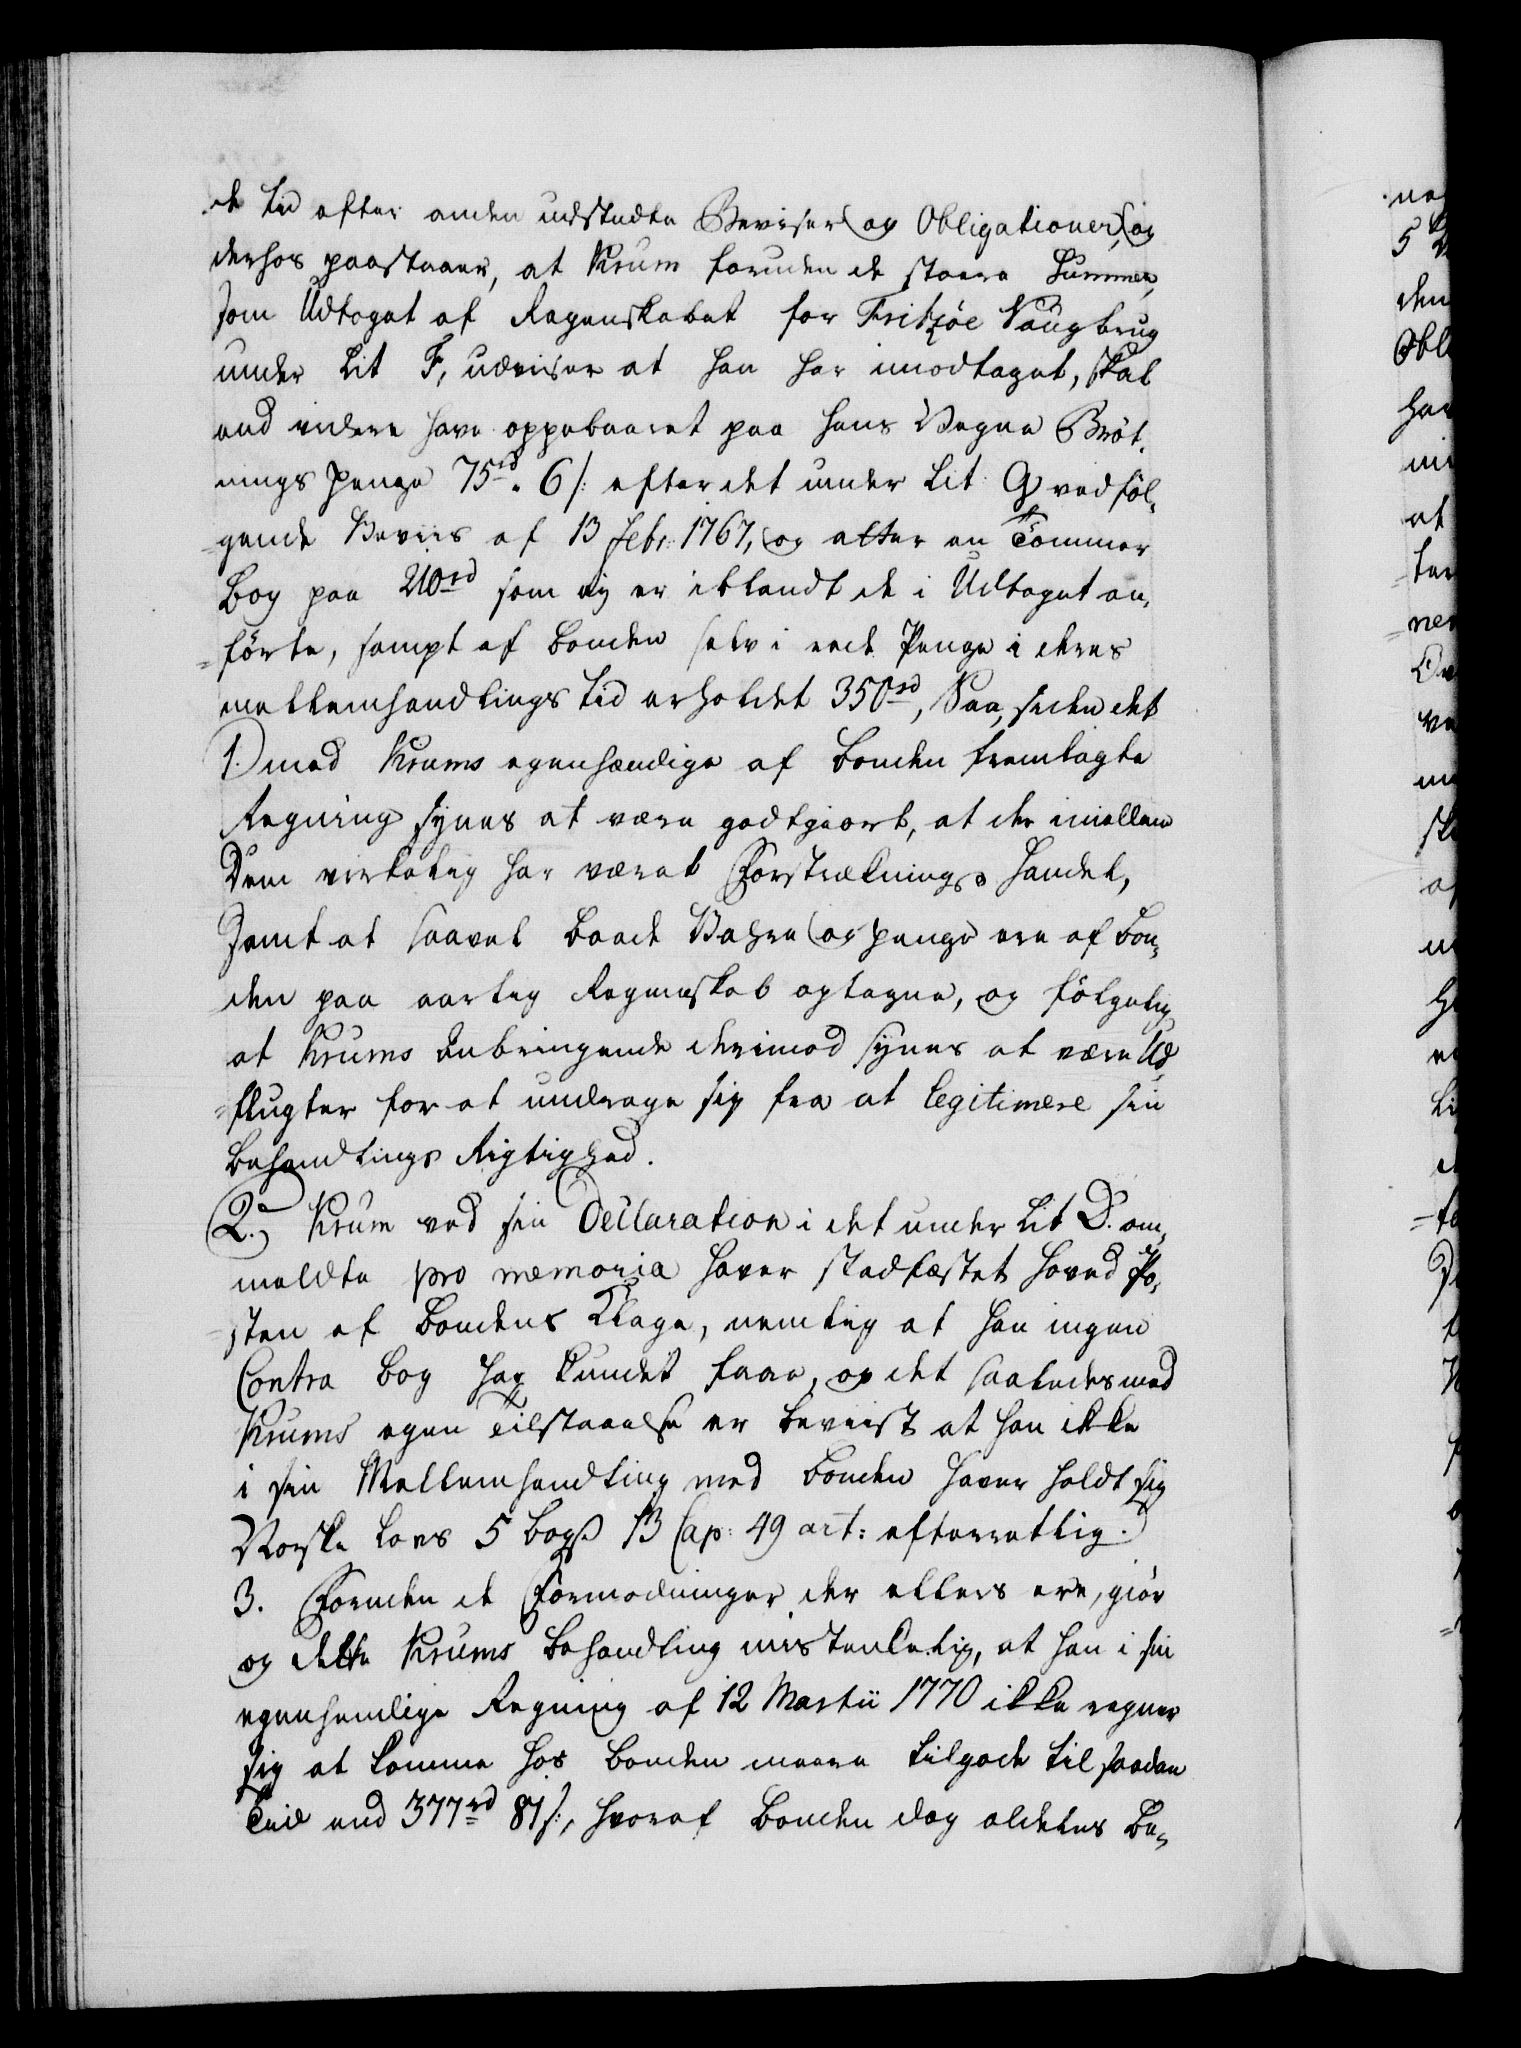 de tid efter anden udstædte Beviser og Obligationer, og
derhos paastaaer, at Krum foruden de større Summer,
som Udtoget af Regenskabet for Fritzöe Saugbrug
under Lit F, udviser at han har imodtaget, skal
end videre have oppebaaret paa hans Vegne Bröt-
nings penge 75rd. 6 s: efter det under Lit: G vedföl-
gende Beviis af 13 Febr: 1767, og atter en Tömmer
Bog paa 210rd som ej er iblandt de i Udtoget an-
förte, sampt af bonden selv i rede Penge i deres
mellemhandlings tid erholdet 350rd, Saa, siden det
1.) med Krums egenhændige af bonden fremlagte
Regning synes at være godtgiort, at der imellem
Dem virkelig har været Forstræknings Handel,
samt at saavel baade Vahre og penge ere af bon-
den paa aarlig Regenskab optagne, og fölgelig
at Krums Indbringende derimod synes at være Ud-
flugter for at undrage sig fra at legitimere sin
behandlings Rigtighed.
2.) Krum ved sin Declaration i det under Lit D. om-
meldte pro memoria haver stadfæstet hoved Po-
sten af bondens Klage, nemlig at han ingen
Contra bog har kundet faae, og det saaledes med
Krums egen Tilstaaelse er beviist at han ikke
i sin Mellemhandling med bonden haver holdt sig
Norske Lovs 5 bogs 13 Cap: 49 art: efterretlig.
3. Foruden de Formodninger der ellers ere, giör
og dette Krums behandling mistenkelig, at han i sin
egenhendige Regning af 12 Martii 1770 ikke regner
sig at komme hos bonden meere tilgode til saadan
Tid end 377rd 81 s:, hvoraf bonden dog aldeles be-